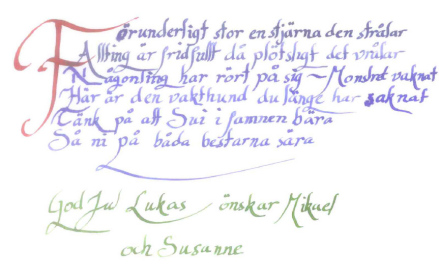 Förunderligt stor en stjärna den strålar
Allting är fridfullt då plötsligt det vrålar
Någonting har rört på sig – Monstret vaknat
Här är den vakthund du länge har saknat
Tänk på att Sui i famnen bära
Så ni på båda bestarna sära
God Jul Lukas önskar Mikael
och Susanne